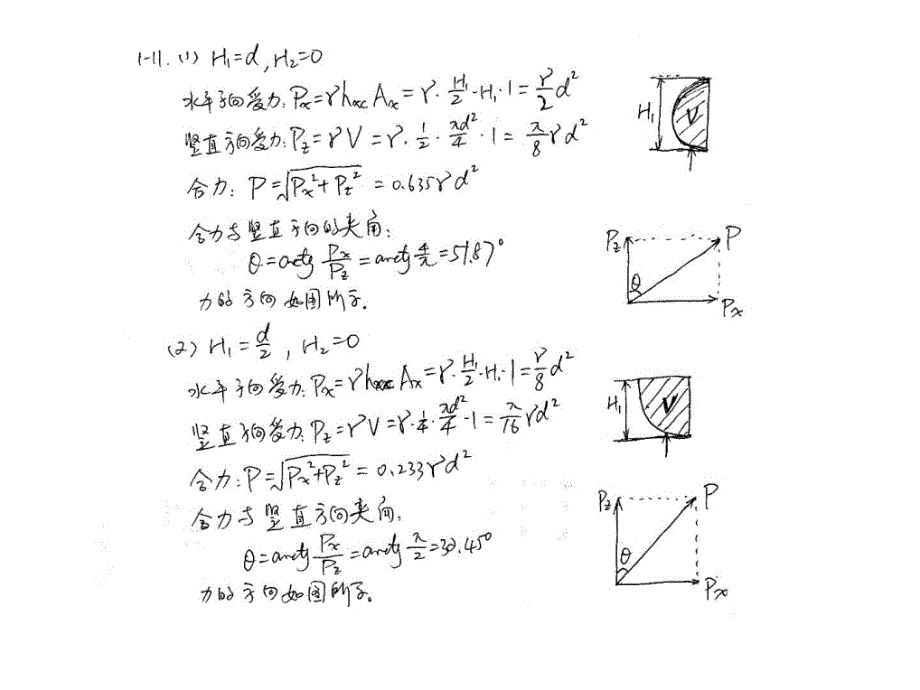 1-11. (1) H₁=d, H₂=0
水平方向受力: Pₓ=γh_xc Aₓ=γ·H₁/2·H₁·1=γ/2 d²
竖直方向受力: P_z=γV=γ·1/2·πd²/4·1=π/8 γd²
合力: P=√(Pₓ²+P_z²)=0.635γd²
合力与竖直方向的夹角:
θ=arctg Pₓ/P_z=arctg 4/π=51.87°
力的方向如图所示.
H₁
V
P_z
P
θ
Pₓ
(2) H₁=d/2, H₂=0
水平方向受力: Pₓ=γh_xc Aₓ=γ·H₁/2·H₁·1=γ/8 d²
竖直方向受力: P_z=γV=γ·1/4·πd²/4·1=π/16 γd²
合力: P=√(Pₓ²+P_z²)=0.233γd²
合力与竖直方向夹角,
θ=arctg Pₓ/P_z=arctg π/2=32.45°
力的方向如图所示.
H₁
V
P_z
P
θ
Pₓ